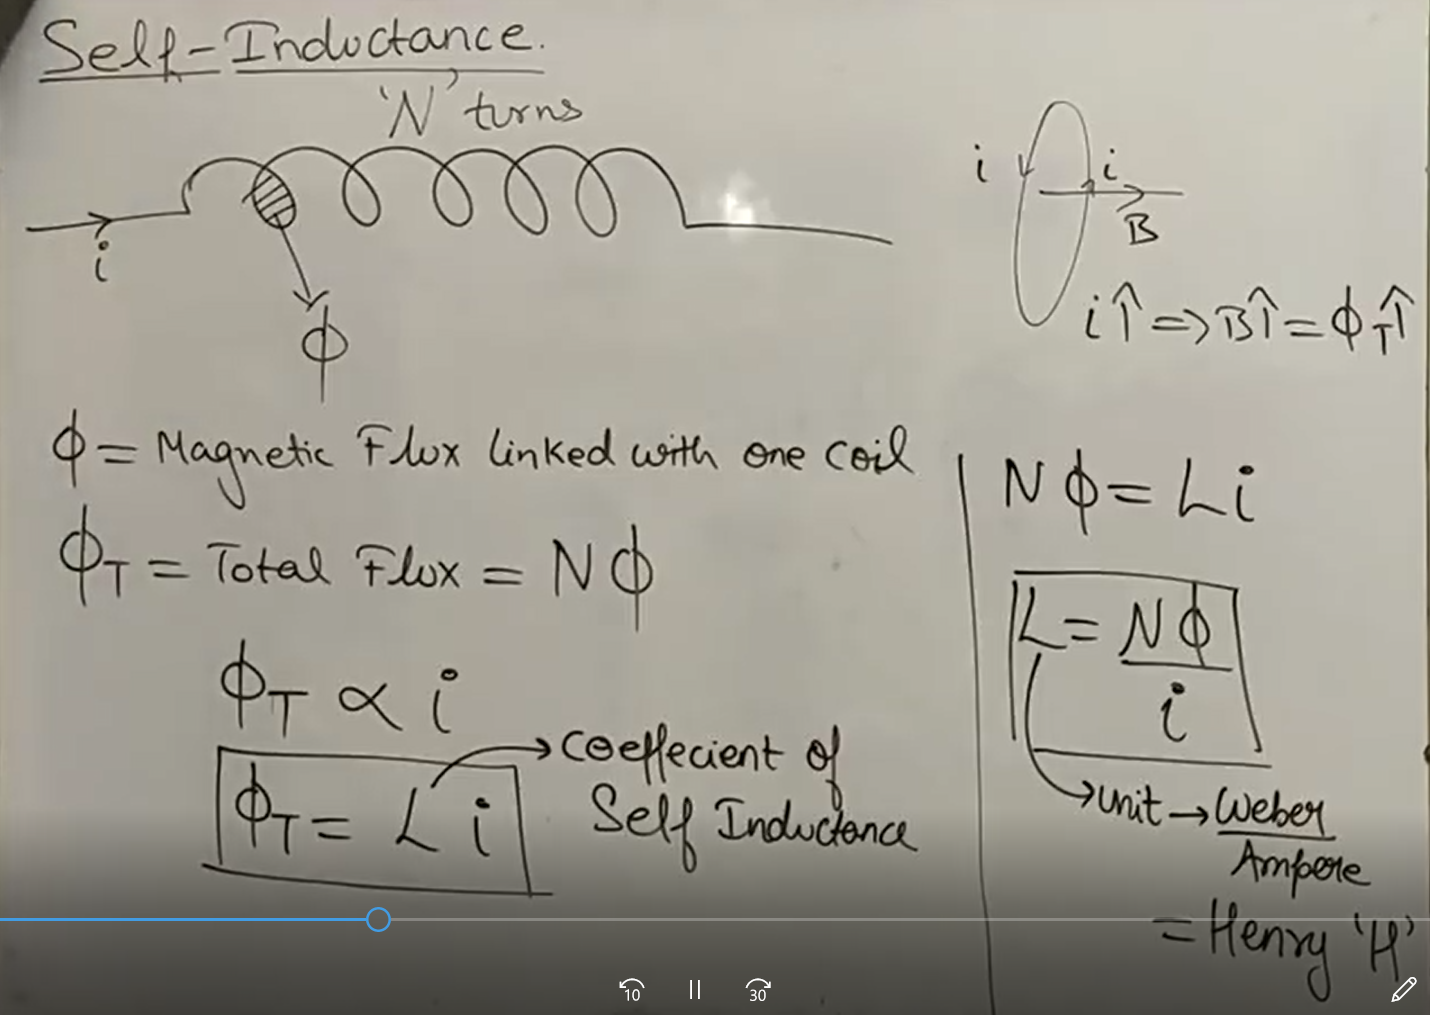 Self-Inductance.
'N' turns
i
ϕ
i
i
B
i↑ => B↑ = ϕT↑
ϕ = Magnetic Flux linked with one coil
ϕT = Total Flux = Nϕ
ϕT ∝ i
ϕT = Li
→ coeffecient of
Self Inductance
Nϕ = Li
L = Nϕ
i
→ unit → Weber
Ampere
= Henry 'H'
10
30